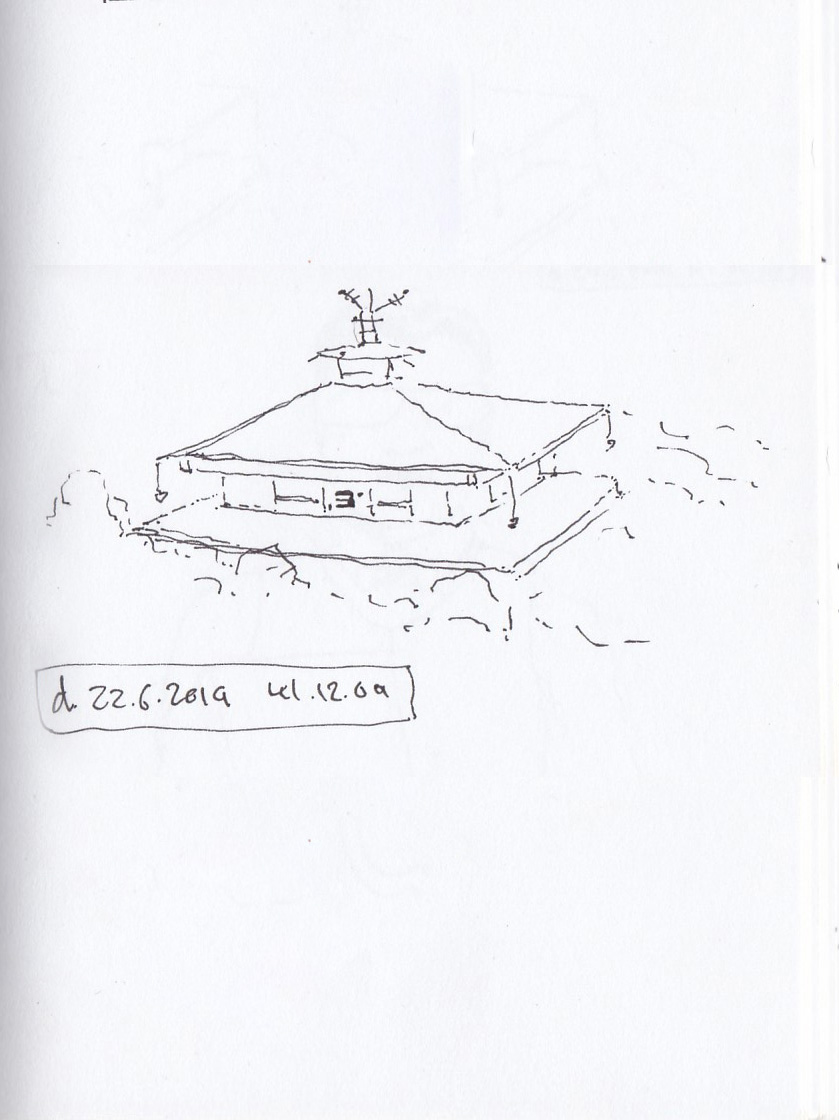 d. 22.6.2019 kl.12.09